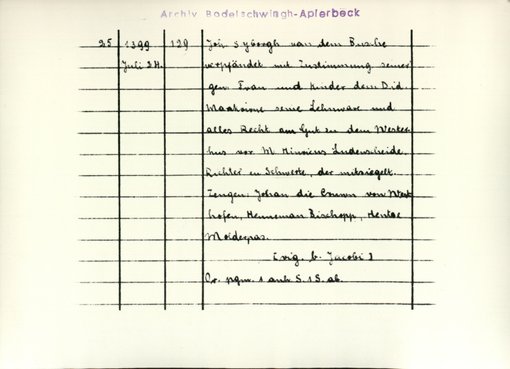 Archiv Bodelschwingh-Aplerbeck
25 1399 129 Joh. Sybergh van dem Busche
Juli 24. verpfändet mit Zustimmung seiner
gen. Frau und Kinder dem Did.
seine Lehnware und
alles Recht am Gut zu dem Wester
hus vor M. Lüdenscheide,
Richter zu Schwerte, der mitsiegelt.
Zeugen: Johan die von West
hofen, Henneman Bischopp,
Molderpas.
(orig. b. Jacobi)
Or. pgm. 1 anh. S. 1 S. ab.